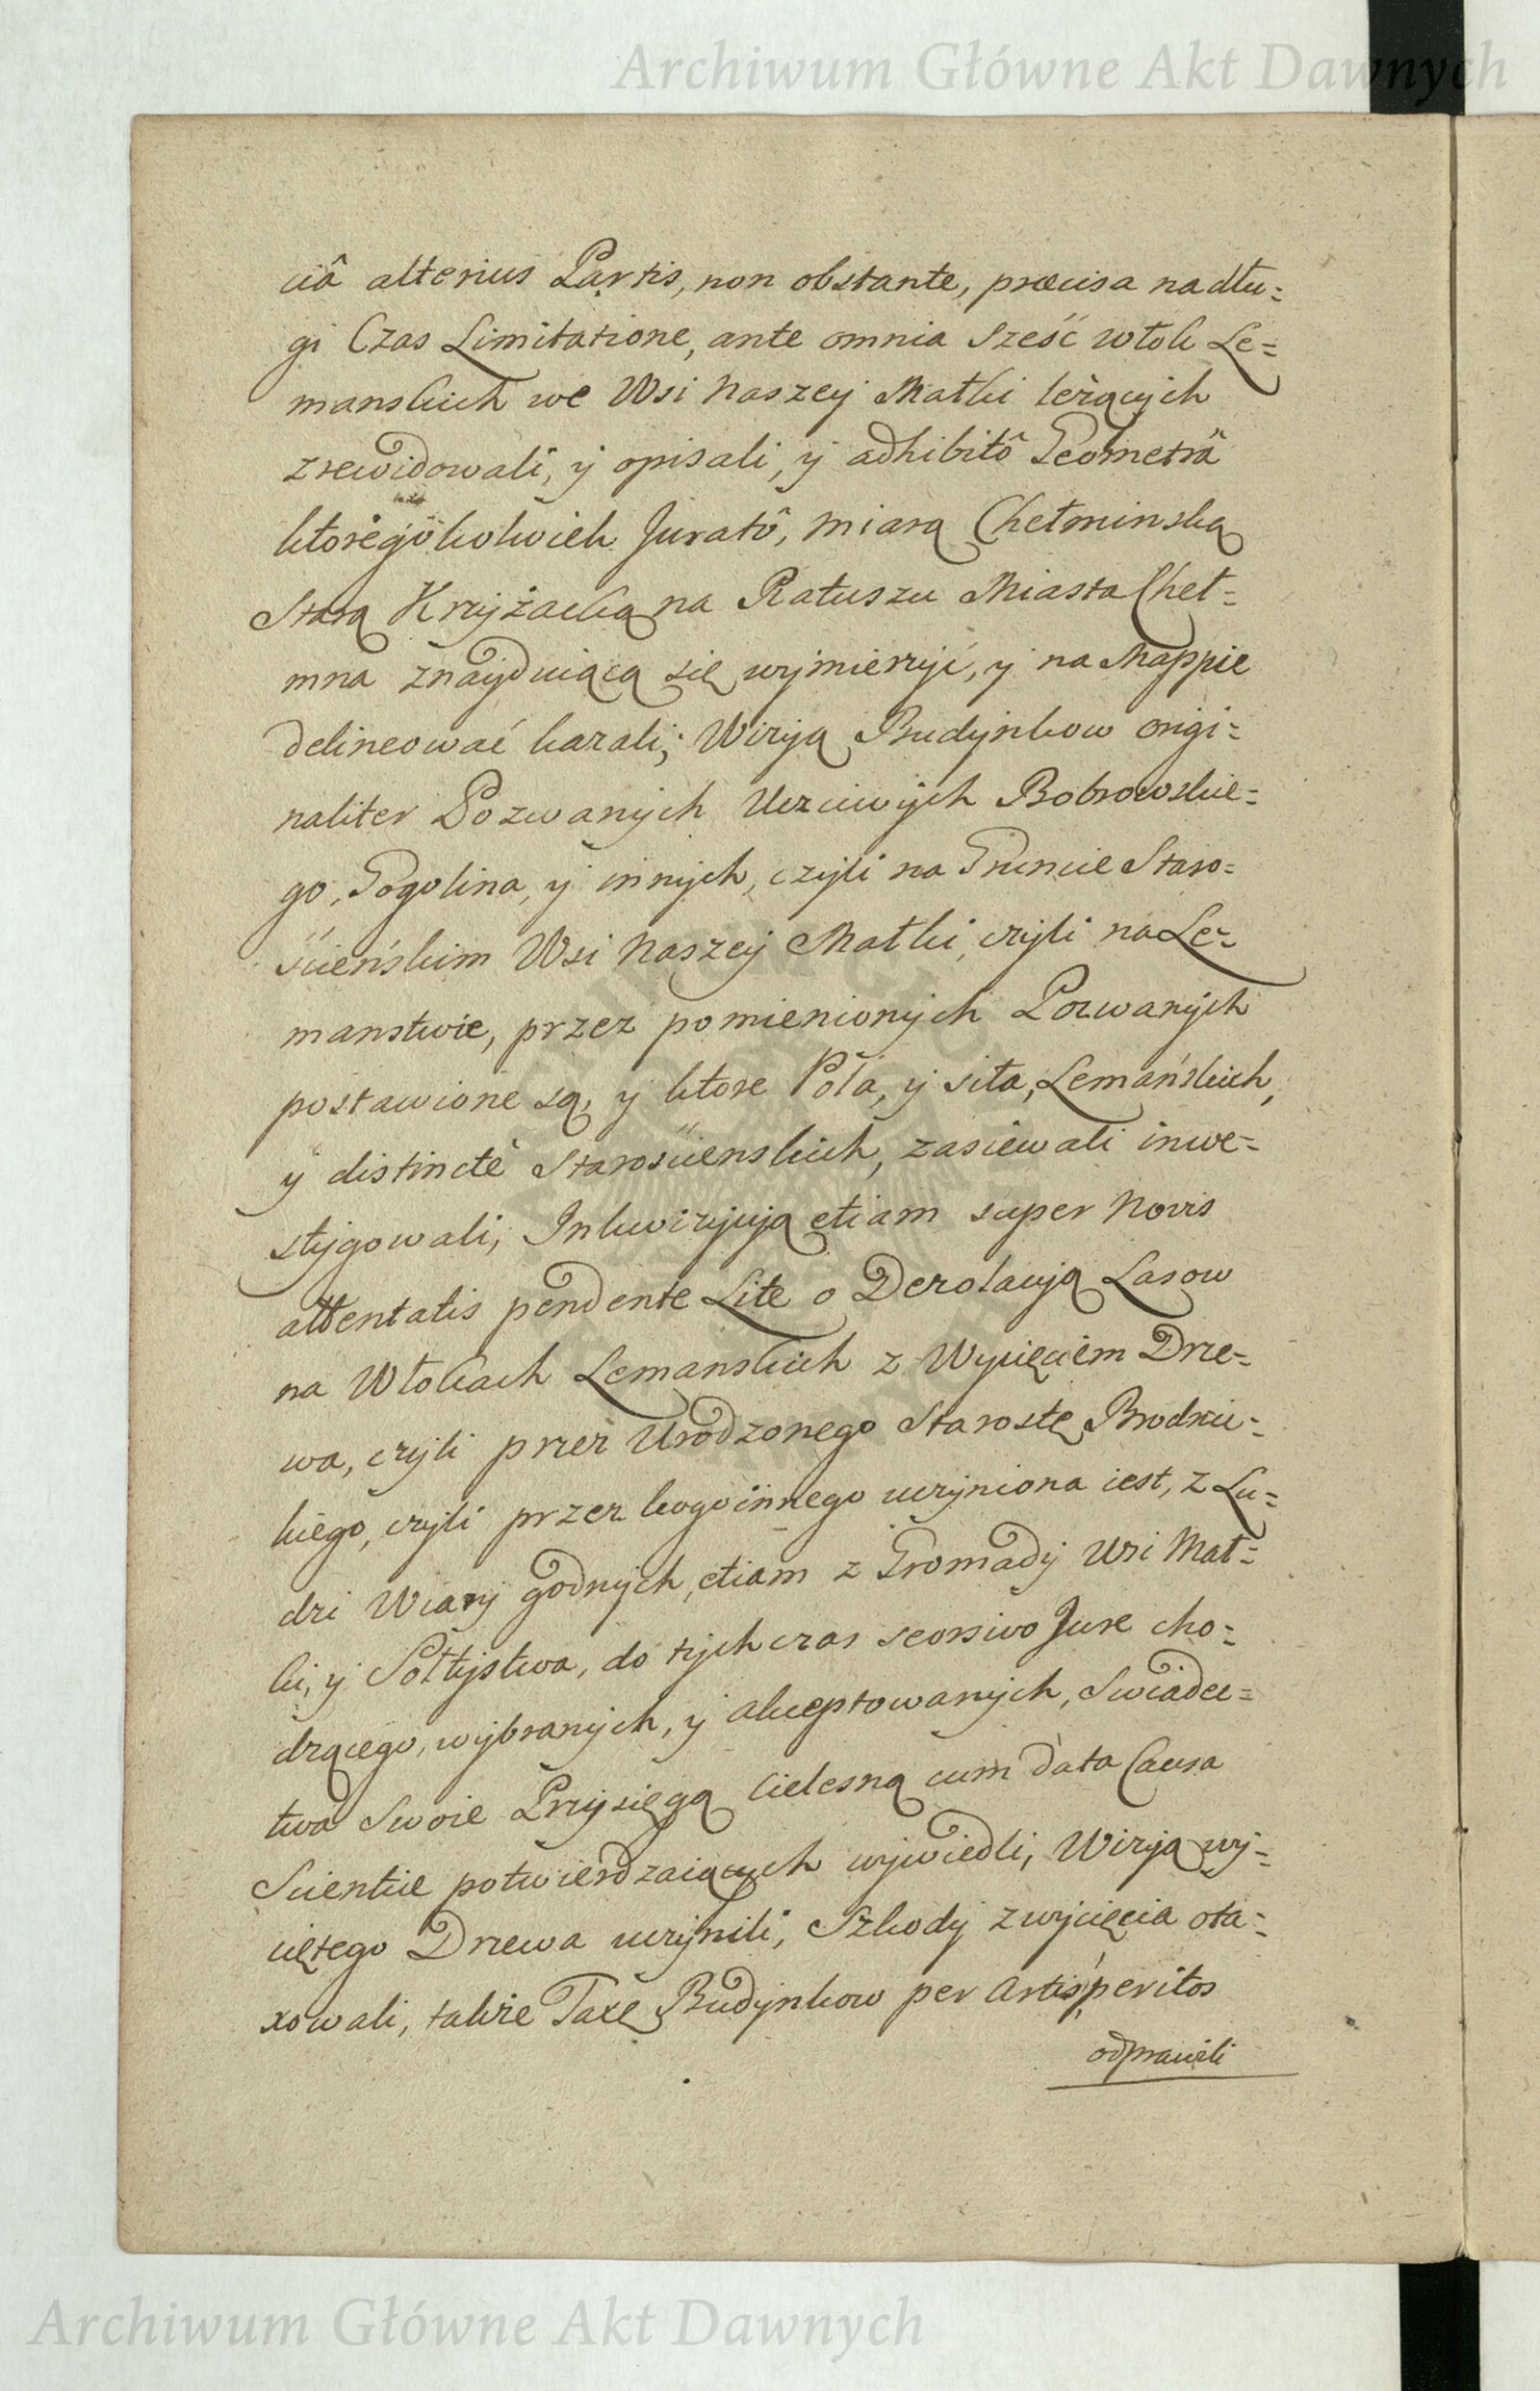 Archiwum Główne Akt Dawnych
ciâ alterius Partis, non obstante, præcisa na dłu=
gi Czas Limitatione, ante omnia Sześć włok Le=
manskich we Wsi Naszey Małki leżących
zrewidowali, y opisali, y adhibitô Geometrâ
ktoregokolwiek Juratô, miarą Chełminską
Starą Krzyżacką na Ratuszu Miasta Cheł=
mna znayduiącą się wymierzyć, y na Mappie
delineować kazali; Wizyą Budynkow origi=
naliter Pozwanych Uczciwych Bobrowskie=
go, Gogolina, y innych, czyli na Gruncie Staro=
ścieńskim Wsi Naszey Małki, czyli na Le=
manstwie, przez pomienionych Pozwanych
postawione są, y ktore Pola, y siła, Lemańskich,
y distinctè Starościenskich, zasiewali inwe=
stygowali; Inkwizycyą etiam super Novis
attentatis pendente Lite o Dezolacyą Lasow
na Włokach Lemanskich z Wycięciem Drze=
wa, czyli przez Urodzonego Starostę Brodzic=
kiego, czyli przez kogo innego uczyniona iest, z Lu=
dzi Wiary godnych, etiam z Gromady Wsi Mał=
ki, y Sołtystwa, do tych czas seorsivo Jure cho=
dzącego, wybranych, y akceptowanych, Swiadec=
twa Swoie Przysięgą Cielesną cum data Causa
Scientiæ potwierdzaiących wywiedli, Wizyą wy=
ciętego Drzewa uczynili, Szkody z wycięcia ota=
xowali, także Taxę Budynkow per Artis peritos
odprawili
Archiwum Główne Akt Dawnych